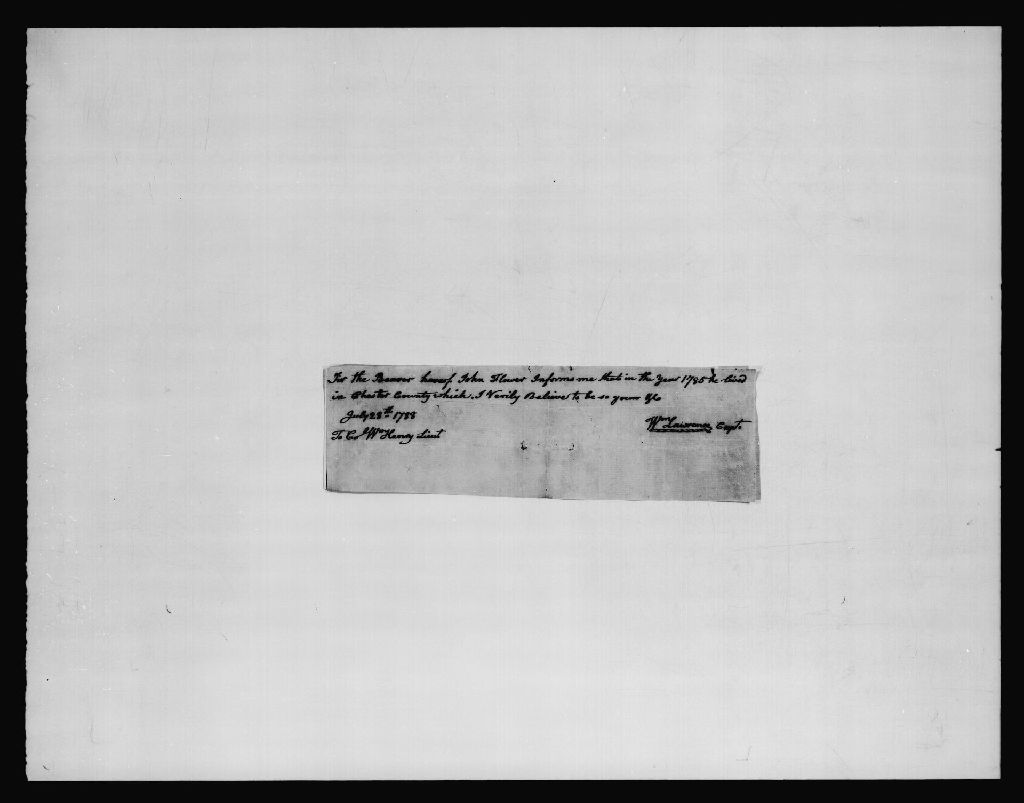 For the Bearer hereof John Flower Informs me that in the Year 1785 he lived
in Chester County which I Verily Believe to be so yours &c
July 28th 1788
Wm Lawrence Capt.
To Col Wm Haney Lieut